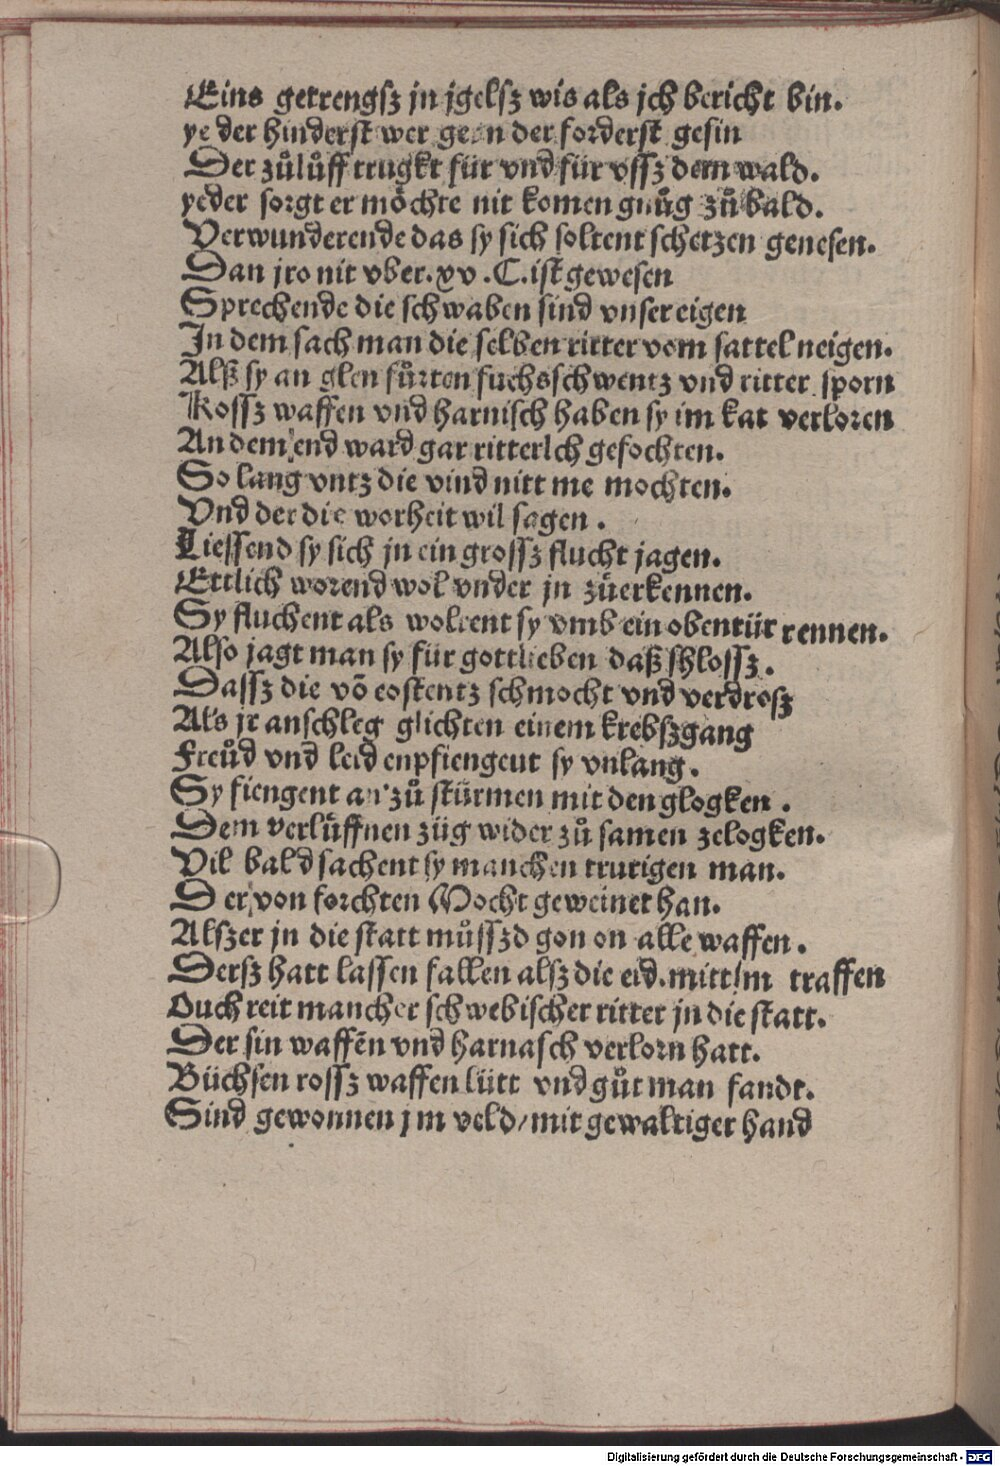 Eins getrengsz jn jgelsz wis als jch bericht bin.
ye der hinderst wer gern der forderst gesin
Der zůlůff trugkt für vnd für vssz dem wald.
yeder sorgt er möchte nit komen gnůg zů bald.
Verwunderende das sy sich soltent schetzen genesen.
Dan jro nit vber .xv .C. ist gewesen
Sprechende die schwaben sind vnser eigen
In dem sach man die selben ritter vom sattel neigen.
Alß sy an glen fůrten fuchsschwentz vnd ritter sporn
Rossz waffen vnd harnisch haben sy im kat verloren
An dem end ward gar ritterlch gefochten.
So lang vntz die vind nitt me mochten.
Vnd der die worheit wil sagen .
Liessend sy sich jn ein grossz flucht jagen.
Ettlich worend wol vnder jn zůerkennen.
Sy fluchent als woltent sy vmb ein obentür rennen.
Also jagt man sy für gottlieben daß shlossz .
Dassz die võ costentz schmocht vnd verdrosz
Als jr anschleg glichten einem krebszgang
Freůd vnd leid enpfiengent sy vnlang .
Sy fiengent an zů stürmen mit den glogken .
Dem verlůffnen züg wider zů samen zelogken.
Vil bald sachent sy manchen trurigen man.
Der von forchten Mocht geweinet han.
Alszer jn die statt můsszd gon on alle waffen .
Dersz hatt lassen fallen alsz die eid. mitt im traffen
Ouch reit mancher schwebischer ritter jn die statt.
Der sin waffẽn vnd harnasch verlorn hatt.
Büchsen rossz waffen lütt vnd gůt man fandt.
Sind gewonnen jm veld/ mit gewaltiger hand
Digitalisierung gefördert durch die Deutsche Forschungsgemeinschaft - DFG